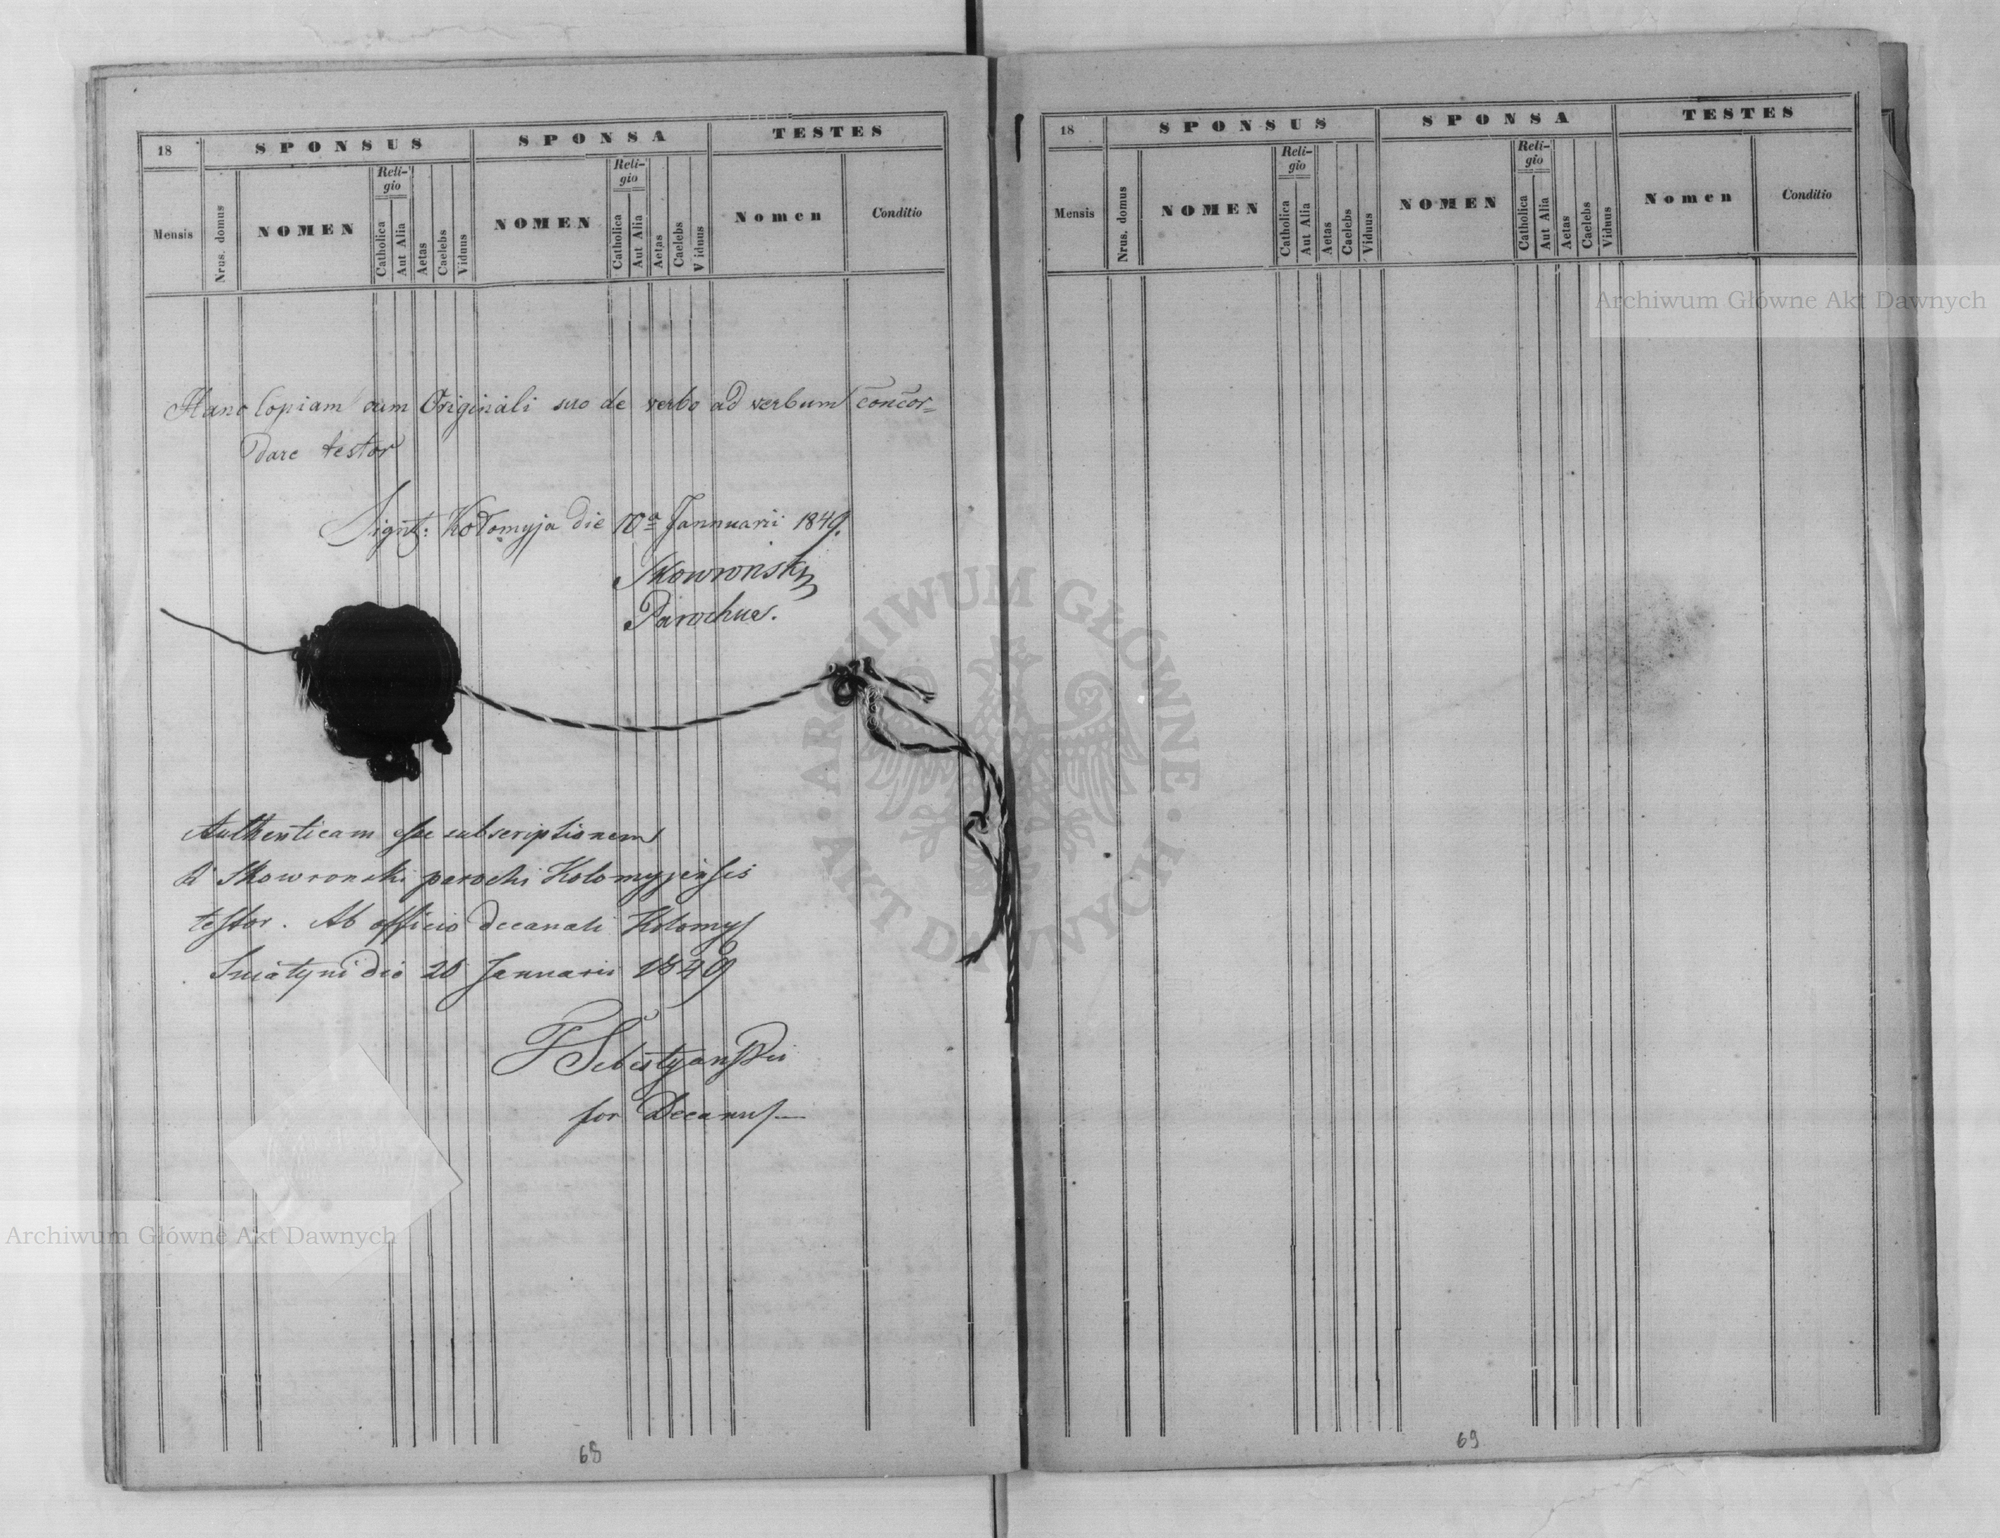 18
SPONSUS
SPONSA
TESTES
Mensis
Nrus. domus
NOMEN
Reli-
gio
Catholica
Aut Alia
Aetas
Caelebs
Viduus
NOMEN
Reli-
gio
Catholica
Aut Alia
Aetas
Caelebs
Viduus
Nomen
Conditio
Hanc Copiam cum Originali suo de verbo ad verbum concor=
dare testor
Signt: Kołomyja die 10a Jannuarii 1849.
Skowroński
Parochus.
Authenticam esse subscriptionem
Skowronski parochi Kolomyjensis
testor. Ab officio decanali Kolomyj
Sniatyni die 25 Januarii 1849
F Sebestyanski
for Decanus
68
18
SPONSUS
SPONSA
TESTES
Mensis
Nrus. domus
NOMEN
Reli-
gio
Catholica
Aut Alia
Aetas
Caelebs
Viduus
NOMEN
Reli-
gio
Catholica
Aut Alia
Aetas
Caelebs
Viduus
Nomen
Conditio
69
Archiwum Główne Akt Dawnych
ARCHIWUM GŁÓWNE
AKT DAWNYCH
Archiwum Główne Akt Dawnych